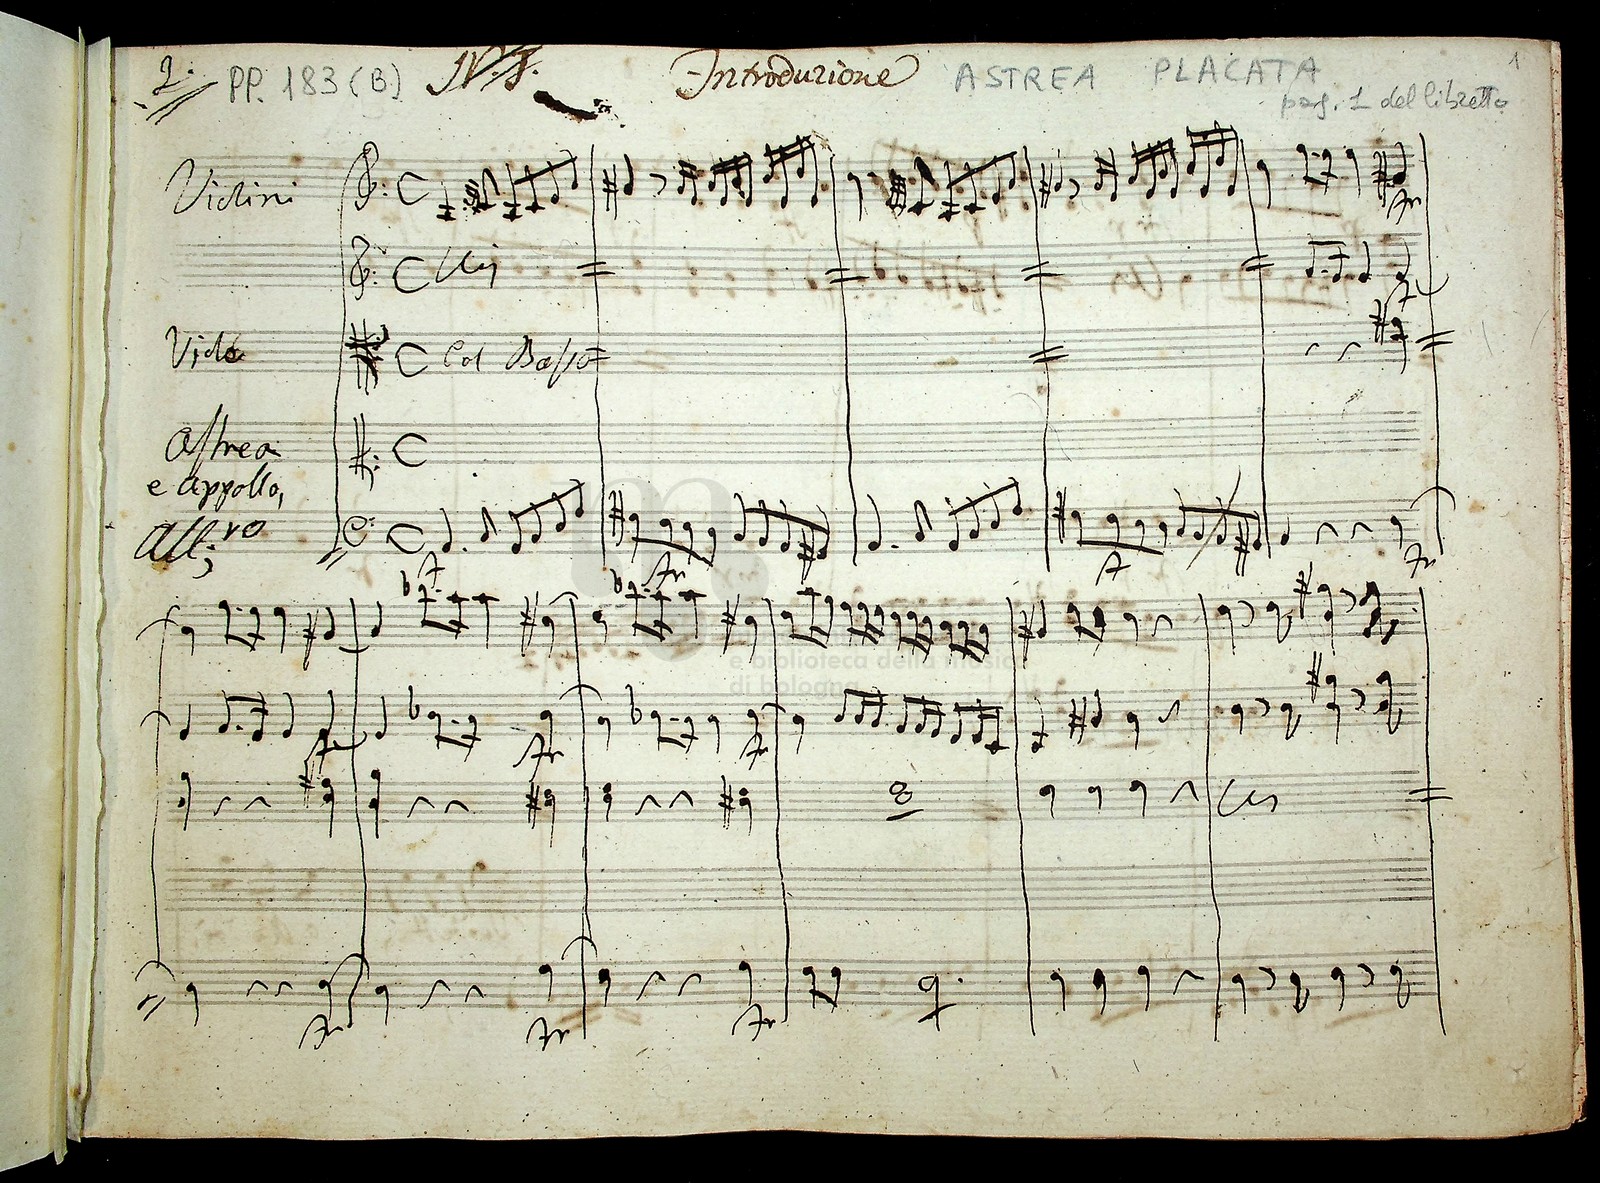 2. PP. 183 (B) Introduzione ASTREA PLACATA 1
pag. 1 del libretto
Violini
Unis
Viola Col Basso
Astrea
e Appollo,
All:ro
e biblioteca della musica
di bologna
Unis